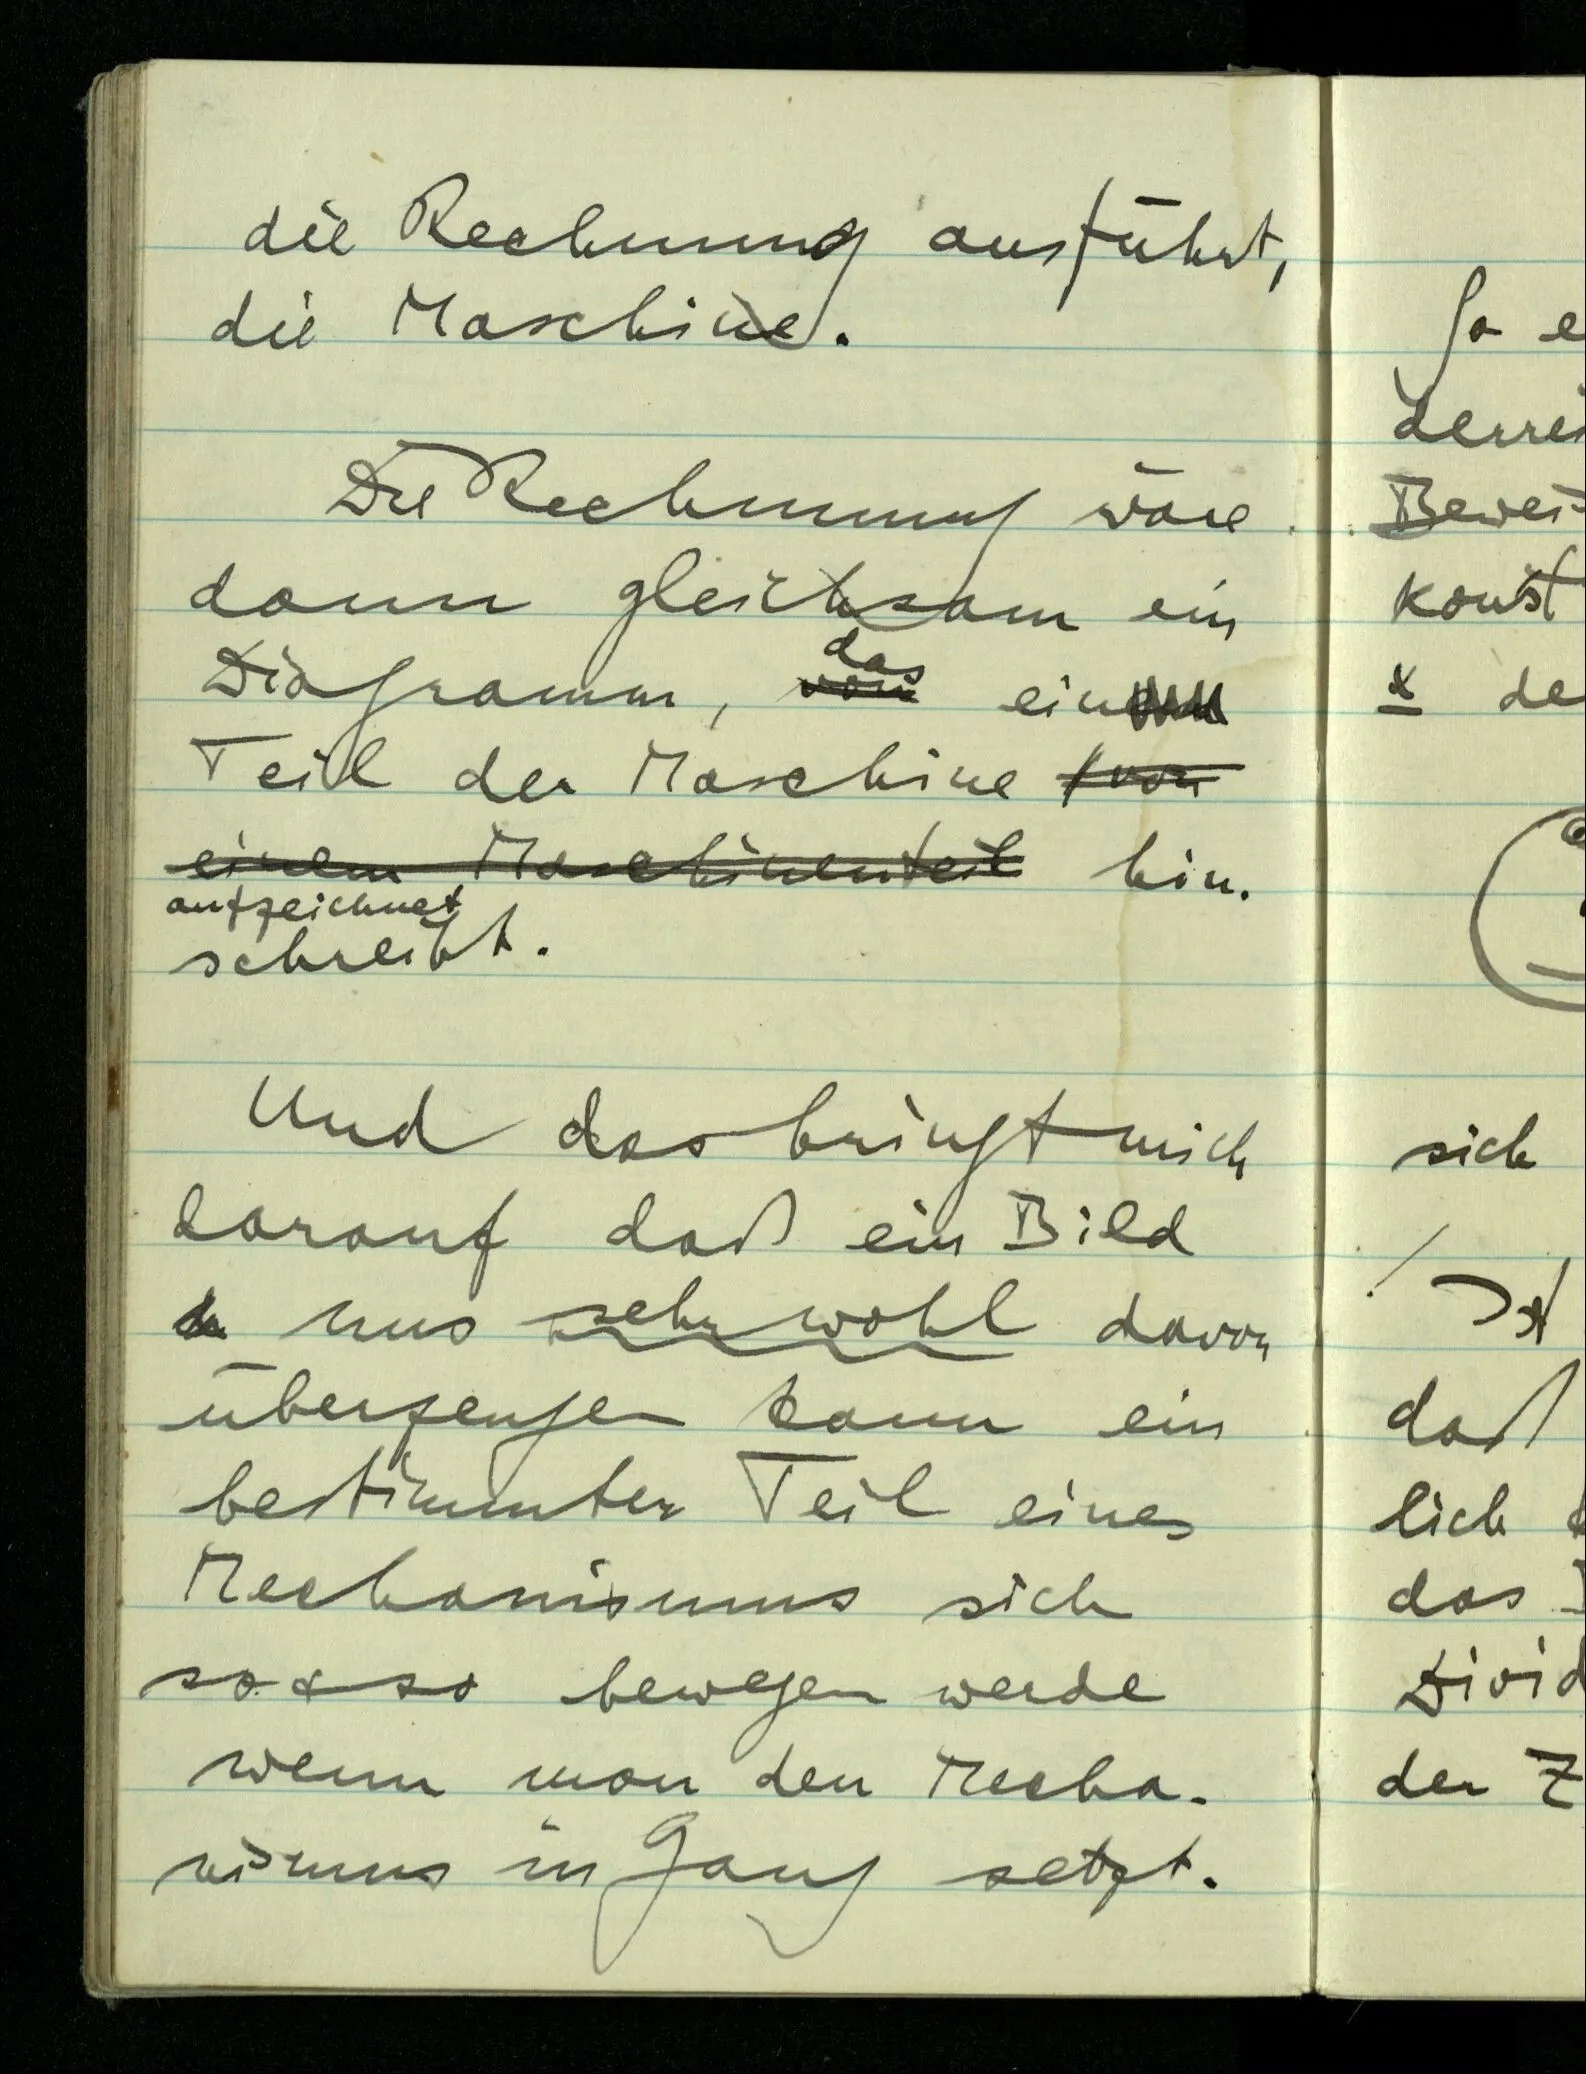 die Rechnung ausführt,
die Maschine.
Die Rechnung wäre
dann gleichsam ein
Diagramm, vom das ein
Teil der Maschine (von
einem Maschinenteil hin.
aufzeichnet
schreibt.
Und das bringt mich
darauf daß ein Bild
uns sehr wohl davon
überzeugen kann ein
bestimmter Teil eines
Mechanismus sich
so & so bewegen werde
wenn man den Mecha-
nismus in Gang setzt.
sich
Ist
daß
lich
das
der Z